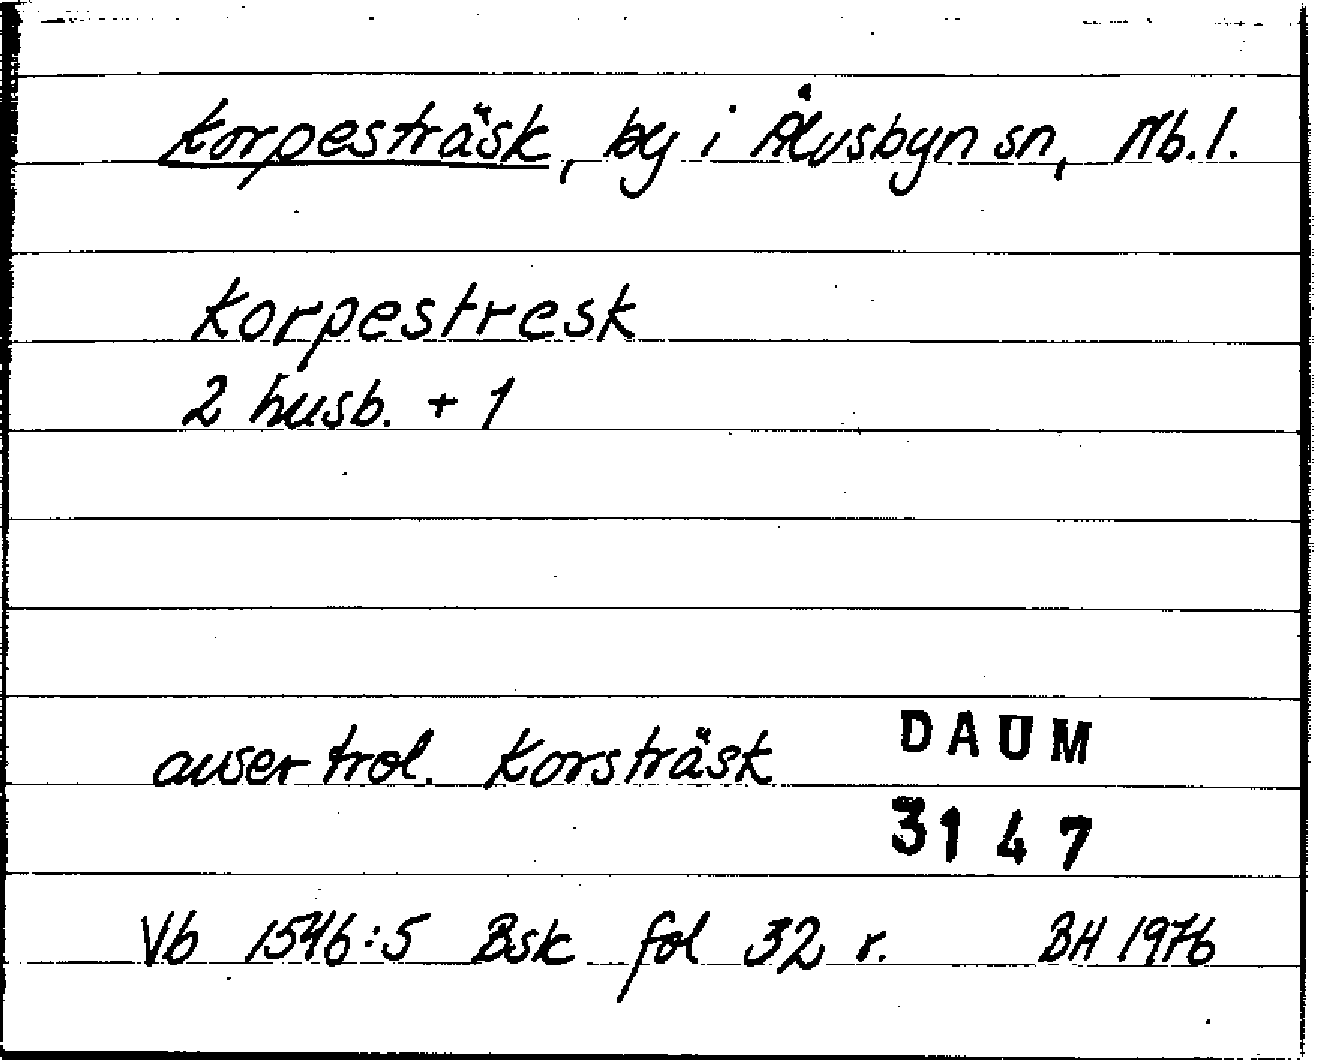 Korpesträsk, by i Älvsbyn sn, Nb.l.
Korpestresk
2 husb. + 1
avser trol. Korsträsk
DAUM
3147
Vb 1546:5 Bsk fol 32 r. BH 1976